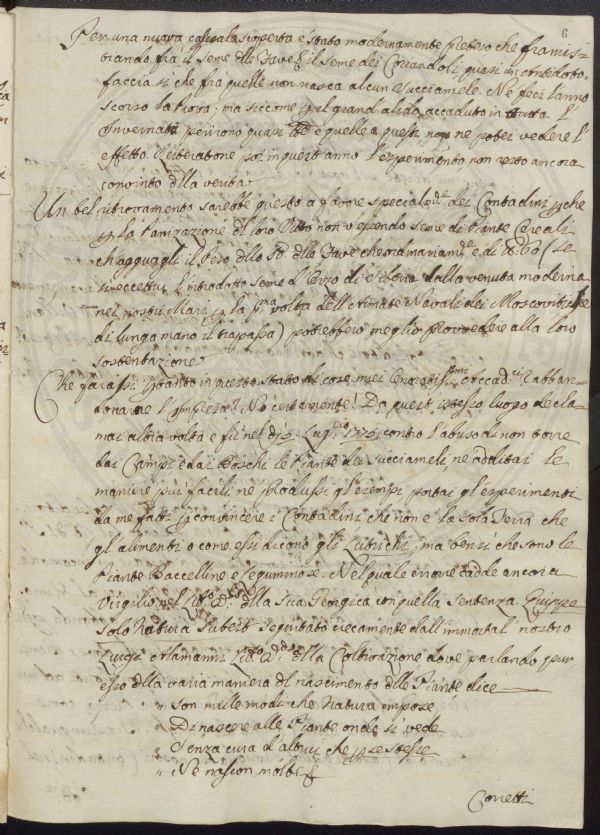 6
Per una nuova casuale scoperta è stato modernamente preteso che framis-
chiando fra il seme delle Fave il seme dei Coriandoli, quasi in contrapposto,
faccia sì che fra quelle non nasca alcun Succiamele. Ne feci l'anno
scorso la prova: ma siccome p il grand'alido accaduto in tutta l'
Invernata perirono quasi e quelle e questi, non ne potei vedere l'
effetto. Reiteratone poi in quest'anno l'esperimento non resto ancora
convinto della verità
Un bel ritrovamento sarebbe questo a favore special.te dei Contadini, che
p la Panizazione di loro Vitto non v'essendo seme di Piante Cereali
ch'agguagli il Peso dello della Fave che ordinariam.te è di 63 (se
si eccettui l'introdotto seme d' Orzo di Siberia dalla venuta moderna
nei nostri Mari p la p.ma volta dell'Armate Navali dei Moscoviti, che
di lunga mano il trapassa) potrebbero meglio provvedere alla loro
sostentazione
Che farassi intanto in questo stato di cose miei Onoratiss.mi abban-
donarne l'Impresa? Nò certamente! Da quest' istesso luogo decla-
mai altra volta e fù nel dì 5. Lug.lio 1775, contro l'abuso di non torre
dai Campi e dai Boschi le Piante dei Succiameli, ne additai le
maniere più facili, ne produssi gl'esempi, portai gl'esperimenti
da me fatti p convincere i Contadini che non è la sola Terra che
gl'alimenti o come essi dicono gli Lubrichi, ma bensì che sono le
Piante Baccelline e Leguminose. Nel quale errore cadde ancora
Virgilio nel Lib.o 2.do della sua Georgica con quella sentenza Quippe
Solo Natura Subest seguitato ciecamente dall'immortal nostro
Luigi Alamanni Lib.o p.mo della Coltivazione dove parlando pur
esso della varia maniera di nascimento delle Piante dice
" Son mille modi che Natura impose
" Di nascere alle Piante onde si vede
" Senza cura d'altrui che p se stesse
" Ne nascon molte
Corretti